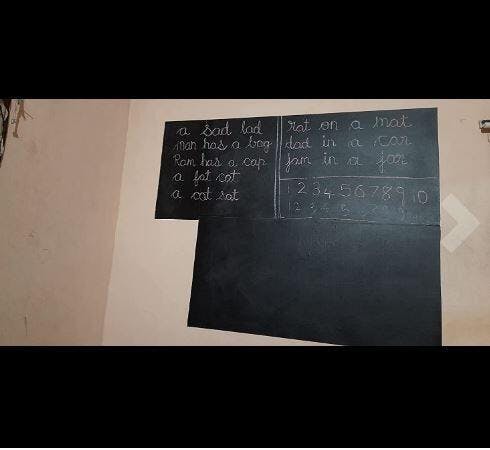 a sad lad
man has a bag
Ram has a cap
a fat cat
a cat sat
rat on a mat
dad in a car
jam in a jar
1 2 3 4 5 6 7 8 9 10
1 2 3 4 5